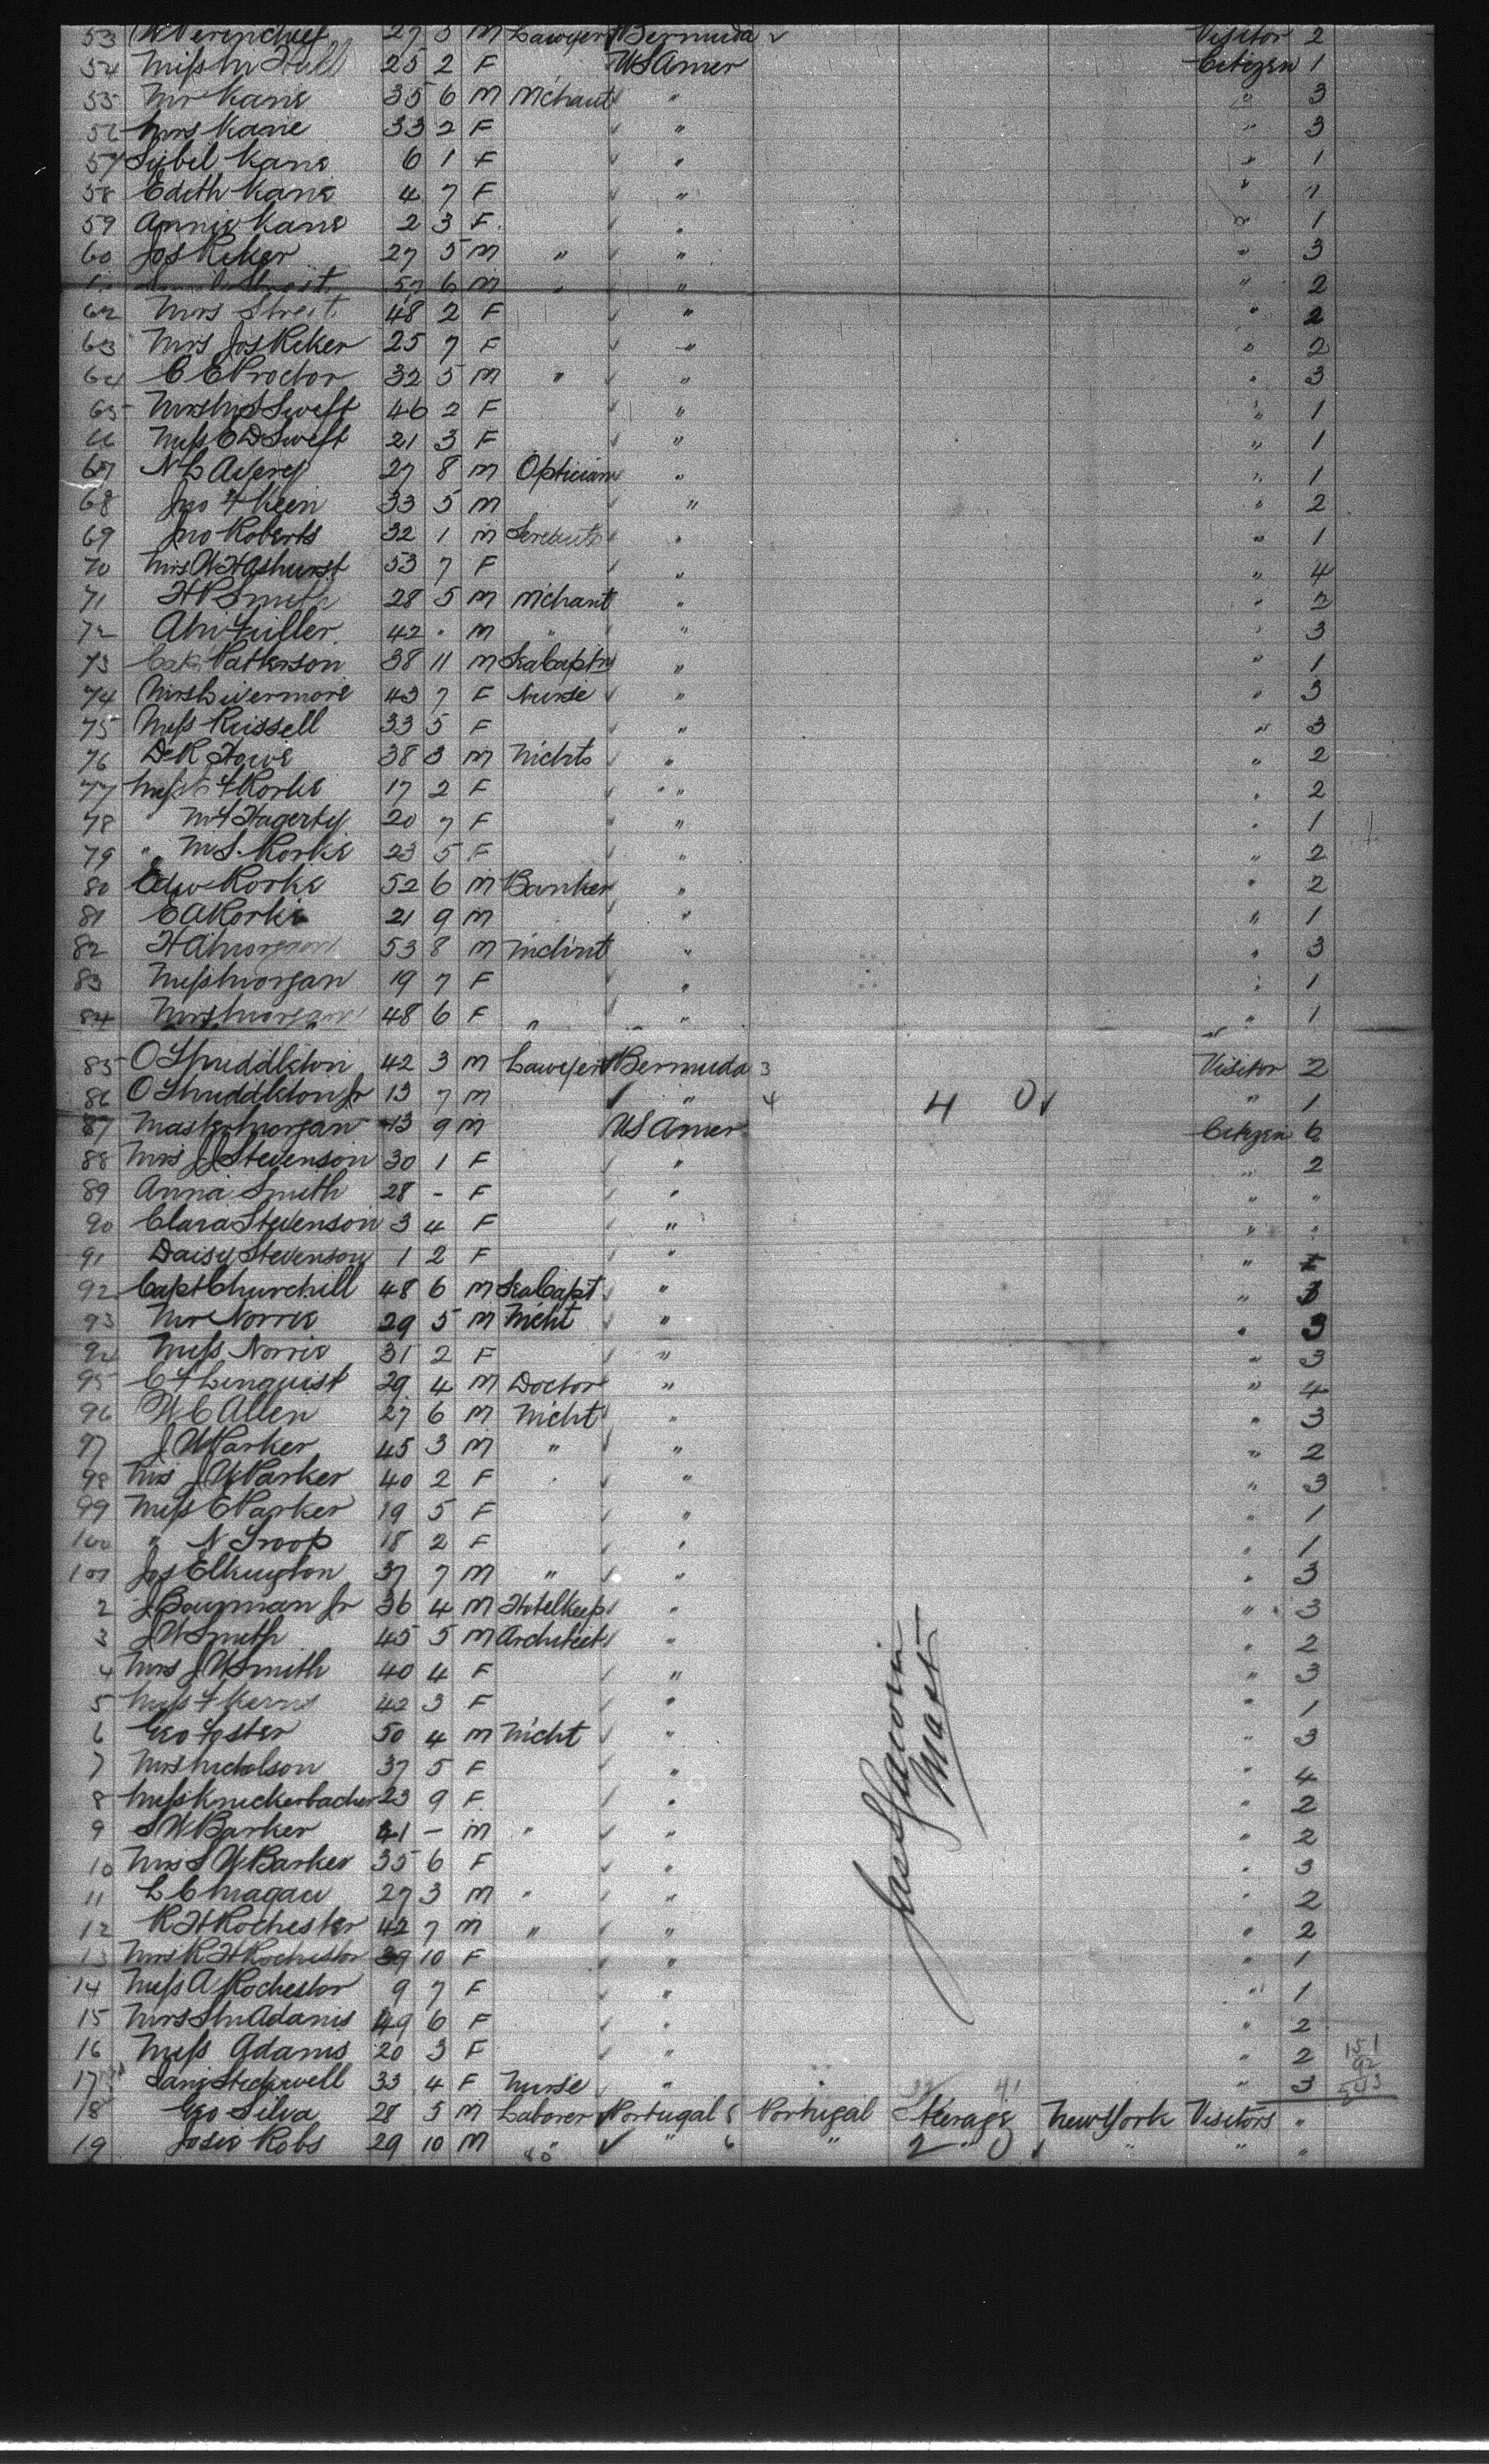 53 27 5 M Lawyer Bermuda Visitor 2
54 Miss M Hall 25 2 F US Amer Citizen 1
55 Mr Kane 35 6 M Mchant " " 3
56 Mrs Kane 33 2 F " " 3
57 Sybel Kane 6 1 F " " 1
58 Edith Kane 4 7 F " " 1
59 Annie Kane 2 3 F " " 1
60 Jos Reker 27 5 M " " " 3
57 6 M " " " 2
62 Mrs Streit 48 2 F " " 2
63 Mrs Jos Reker 25 7 F " " 2
64 C E Proctor 32 5 M " " " 3
65 Mrs M S Swift 46 2 F " " 1
66 Miss E D Swift 21 3 F " " 1
67 N L Avery 27 8 M Optician " " 1
68 Jno F Keen 33 5 M " " 2
69 Jno Roberts 32 1 M " " 1
70 Mrs W H Ashurst 53 7 F " " 4
71 H P Smith 28 5 M Mchant " " 2
72 Fuller 42 " M " " " 3
73 Patterson 38 11 M Sea Captn " " 1
74 Mrs Livermore 43 7 F Nurse " " 3
75 Miss Russell 33 5 F " " 3
76 D R Howe 38 3 M Michts " " 2
77 Miss F Rorke 17 2 F " " 2
78 " M F Hagerty 20 7 F " " 1
79 " M S. Rorke 23 5 F " " 2
80 Edw Rorke 52 6 M Banker " " 2
81 E A Rorke 21 9 M " " 1
82 H A Morgan 53 8 M " " 3
83 Miss Morgan 19 7 F " " 1
84 Mrs Morgan 48 6 F " " " 1
85 O 42 3 M Lawyer Bermuda 3 Visitor 2
86 O Jr 13 7 M " 4 4 0 " 1
87 Master Morgan 13 9 M US Amer Citizen 6
88 Mrs J J Stevenson 30 1 F " " 2
89 Anna Smith 28 - F " " "
90 Clara Stevenson 3 4 F " " "
91 Daisy Stevenson 1 2 F " "
92 Capt Churchill 48 6 M Sea Capt " "
93 Mr Norris 29 5 M Micht " " 3
94 Miss Norris 31 2 F " " 3
95 C F Linquist 29 4 M Doctor " " 4
96 W C Allen 27 6 M Micht " " 3
97 J W Parker 45 3 M " " " 2
98 Mrs J W Parker 40 2 F " " 3
99 Miss E Parker 19 5 F " " 1
100 " N Troop 18 2 F " " 1
101 Jos Elkington 37 7 M " " " 3
2 J Bowman Jr 36 4 M Hotelkeep " " 3
3 J W Smith 45 5 M Architect " " 2
4 Mrs J W Smith 40 4 F " " 3
5 Miss F Kerns 42 3 F " " 1
6 Geo Foster 50 4 M Micht " " 3
7 Mrs Nicholson 37 5 F " " 4
8 Miss Knickerbacker 23 9 F " " 2
9 S W Barker 41 - M " " " 2
10 Mrs S W Barker 35 6 F " " 3
11 L C Magaw 27 3 M " " " 2
12 R H Rochester 42 7 M " " " 2
13 Mrs R H Rochester 39 10 F " " 1
14 Miss A Rochester 9 7 F " " 1
15 Mrs S M Adams 49 6 F " " 2
16 Miss Adams 20 3 F " " 2
17 Stockwell 33 4 F Nurse " " 3
18 Geo Silva 28 5 M Laborer Portugal 5 Portugal Steerage New York Visitors "
19 Josie Robs 29 10 M " " 6 " 2 " 0 " " "
Mast